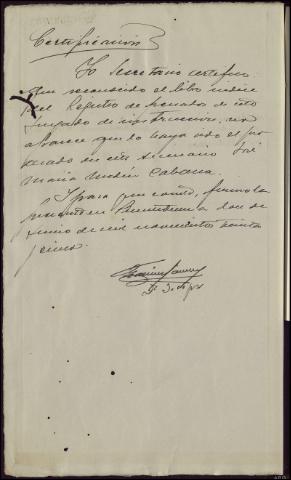 Certificación
Yo Secretario certifico:
Que reconocido el libro indice
del Registro de Penados de este
Juzgado de instrucción, no
aparece que lo haya sido el pro
cesado en este sumario José
María Cabana.
Y para que conste, firmo la
presente en a dos de
Junio de mil novecientos treinta
y cinco.